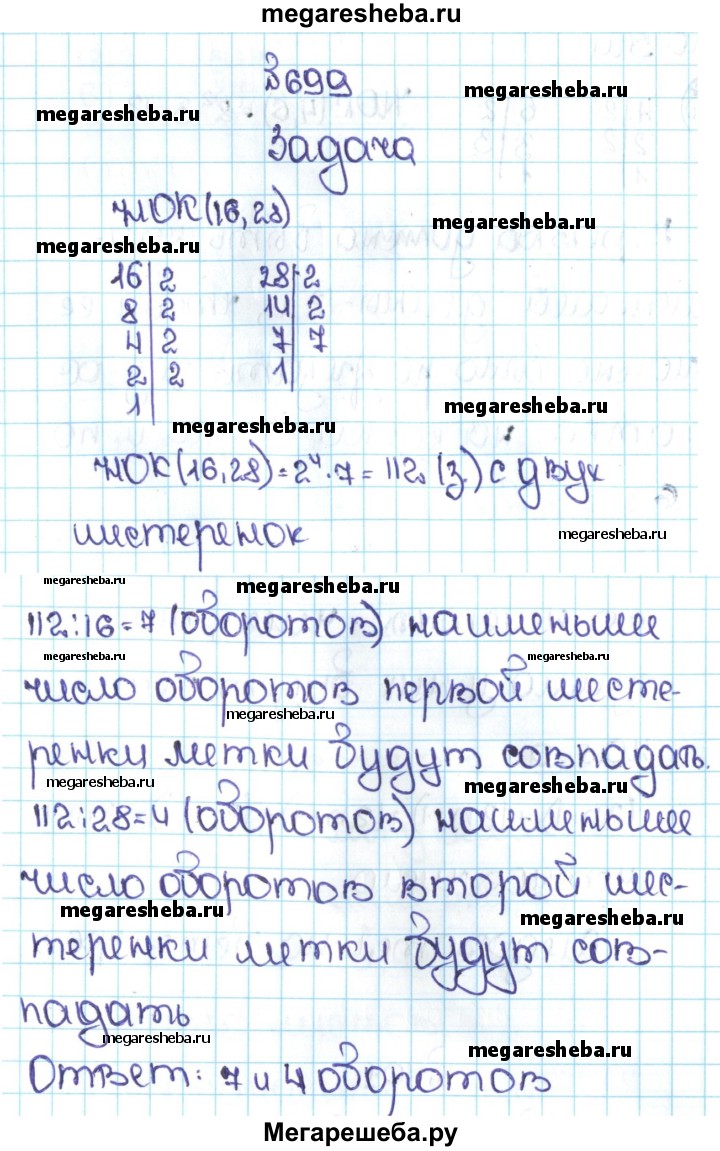 megaresheba.ru
№699
megaresheba.ru
megaresheba.ru
Задача
НОК(16,28)
megaresheba.ru
megaresheba.ru
16|2 28|2
8|2 14|2
4|2 7|7
2|2 1|
1|
megaresheba.ru
megaresheba.ru
НОК(16,28)=2⁴·7=112 (з.) с двух
шестеренок
megaresheba.ru
megaresheba.ru
megaresheba.ru
112:16=7 (оборотов) наименьшее
megaresheba.ru
megaresheba.ru
число оборотов первой шесте-
megaresheba.ru
ренки метки будут совпадать.
megaresheba.ru
megaresheba.ru
112:28=4 (оборотов) наименьшее
число оборотов второй шес-
megaresheba.ru
megaresheba.ru
теренки метки будут сов-
падать
megaresheba.ru
megaresheba.ru
Ответ: 7 и 4 оборотов
Мегарешеба.ру